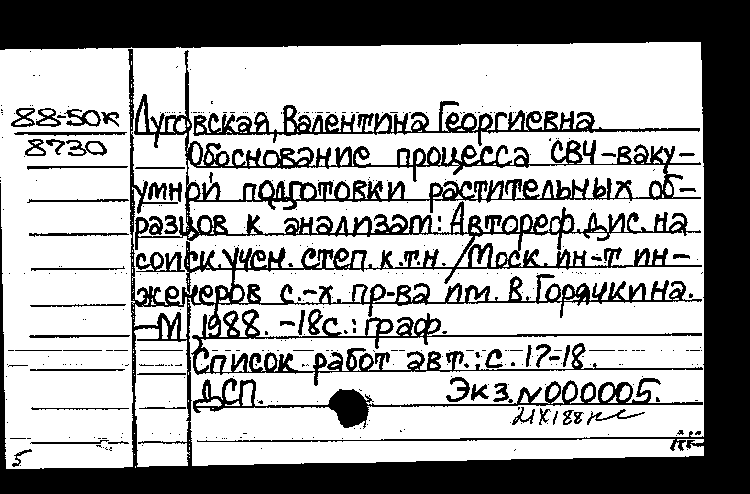 88-50к Луговская, Валентина Георгиевна.
8730 Обоснование процесса СВЧ-ваку-
умной подготовки растительных об-
разцов к анализам: Автореф. дис. на
соиск. учен. степ. к.т.н. / Моск. ин-т ин-
женеров с.-х. пр-ва им. В. Горячкина.
—М, 1988. -18с.: граф.
Список работ авт.: с. 17-18.
ДСП. Экз. N000005.
5